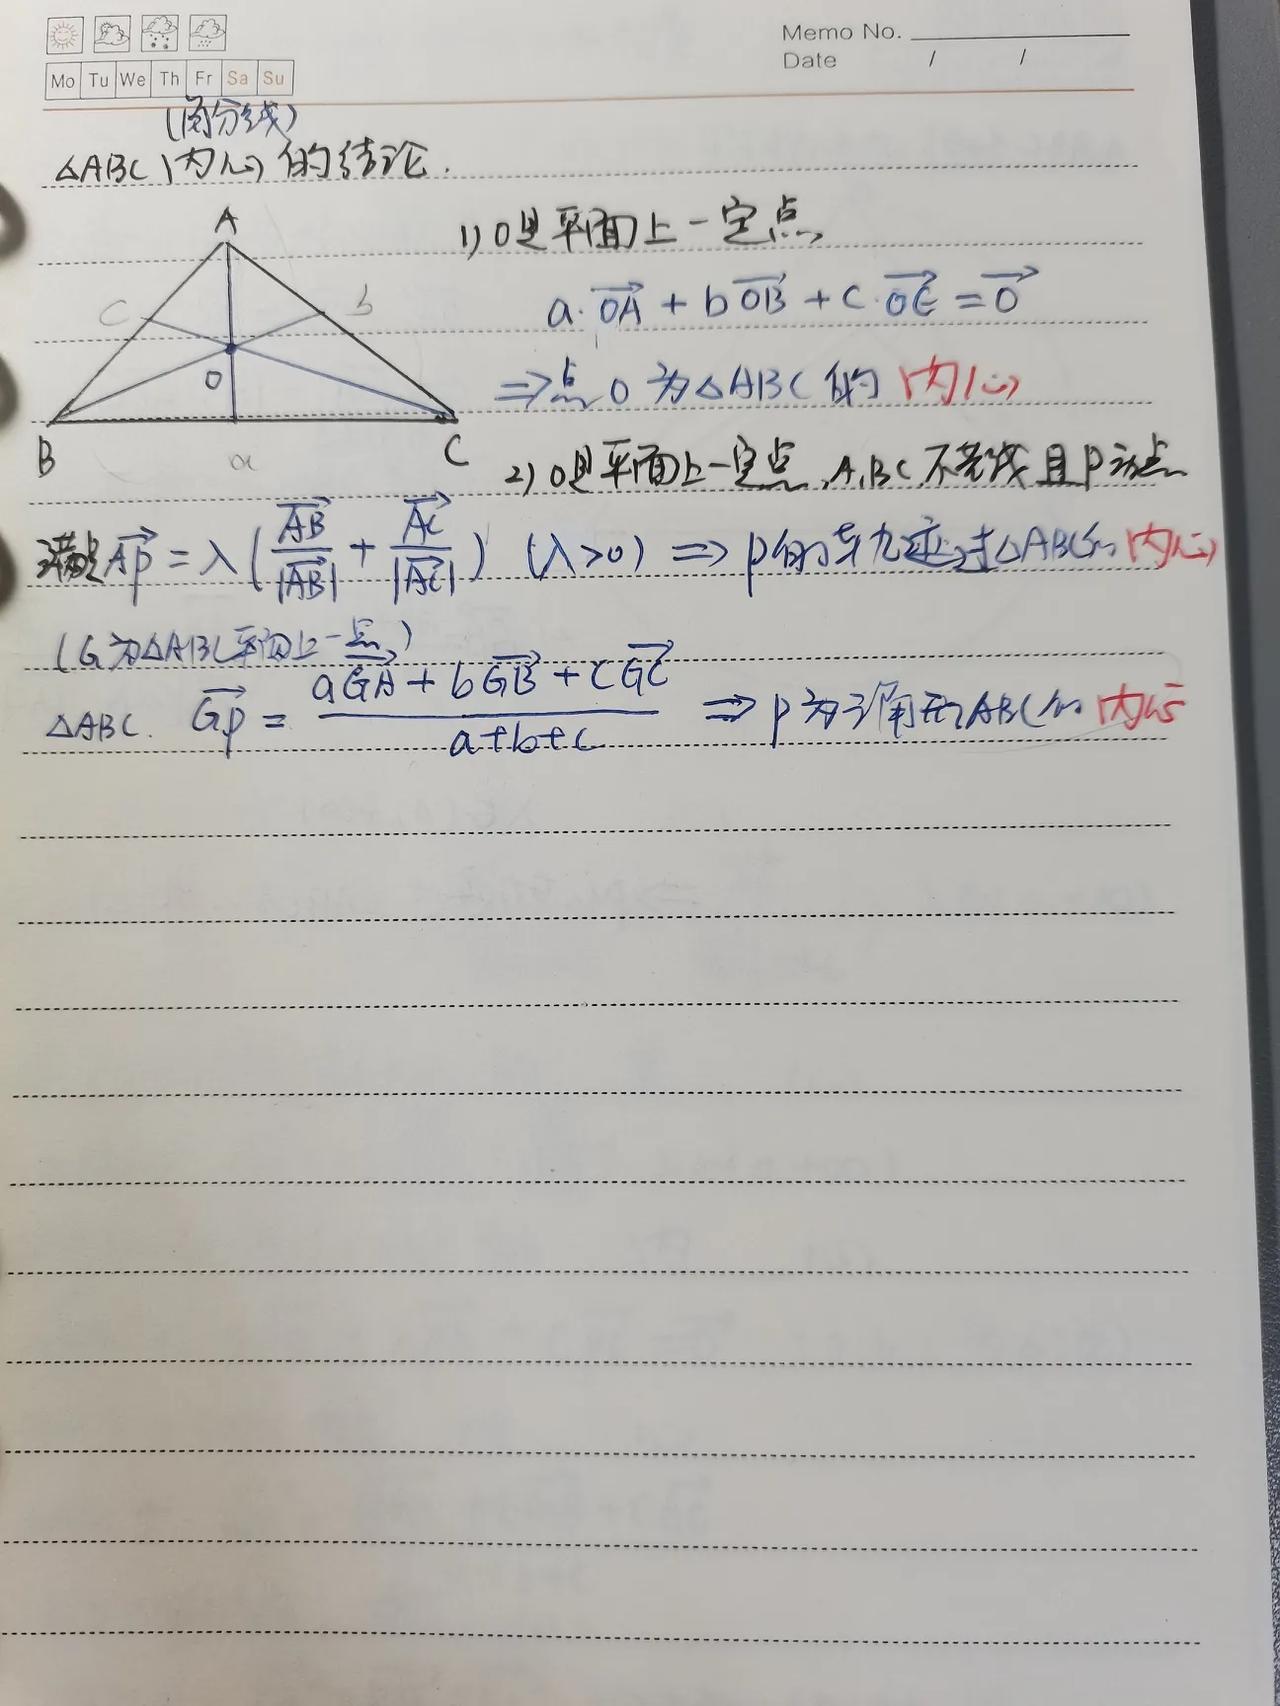 Memo No.
Date / /
Mo Tu We Th Fr Sa Su
(角分线)
△ABC(内心)的结论.
A
c
b
O
B
a
C
1) O是平面上一定点
a·\overrightarrow{OA} + b\overrightarrow{OB} + c·\overrightarrow{OC} = \overrightarrow{O}
⇒点O为△ABC的内心
2) O是平面上一定点,A,B,C不共线且P动点
满足\overrightarrow{AP} = λ(\frac{\overrightarrow{AB}}{|\overrightarrow{AB}|} + \frac{\overrightarrow{AC}}{|\overrightarrow{AC}|}) (λ>0) ⇒ P的轨迹过△ABC的内心
(G为△ABC平面上一点)
△ABC. \overrightarrow{GP} = \frac{a\overrightarrow{GA} + b\overrightarrow{GB} + c\overrightarrow{GC}}{a+b+c} ⇒ P为三角形ABC的内心